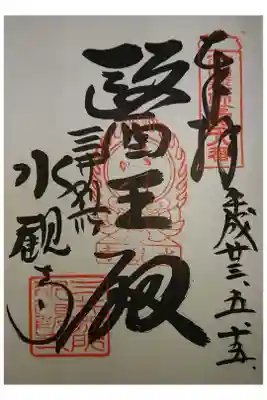 奉拝
平成廿三、五、十五、
醫王殿
三井別所
水観寺